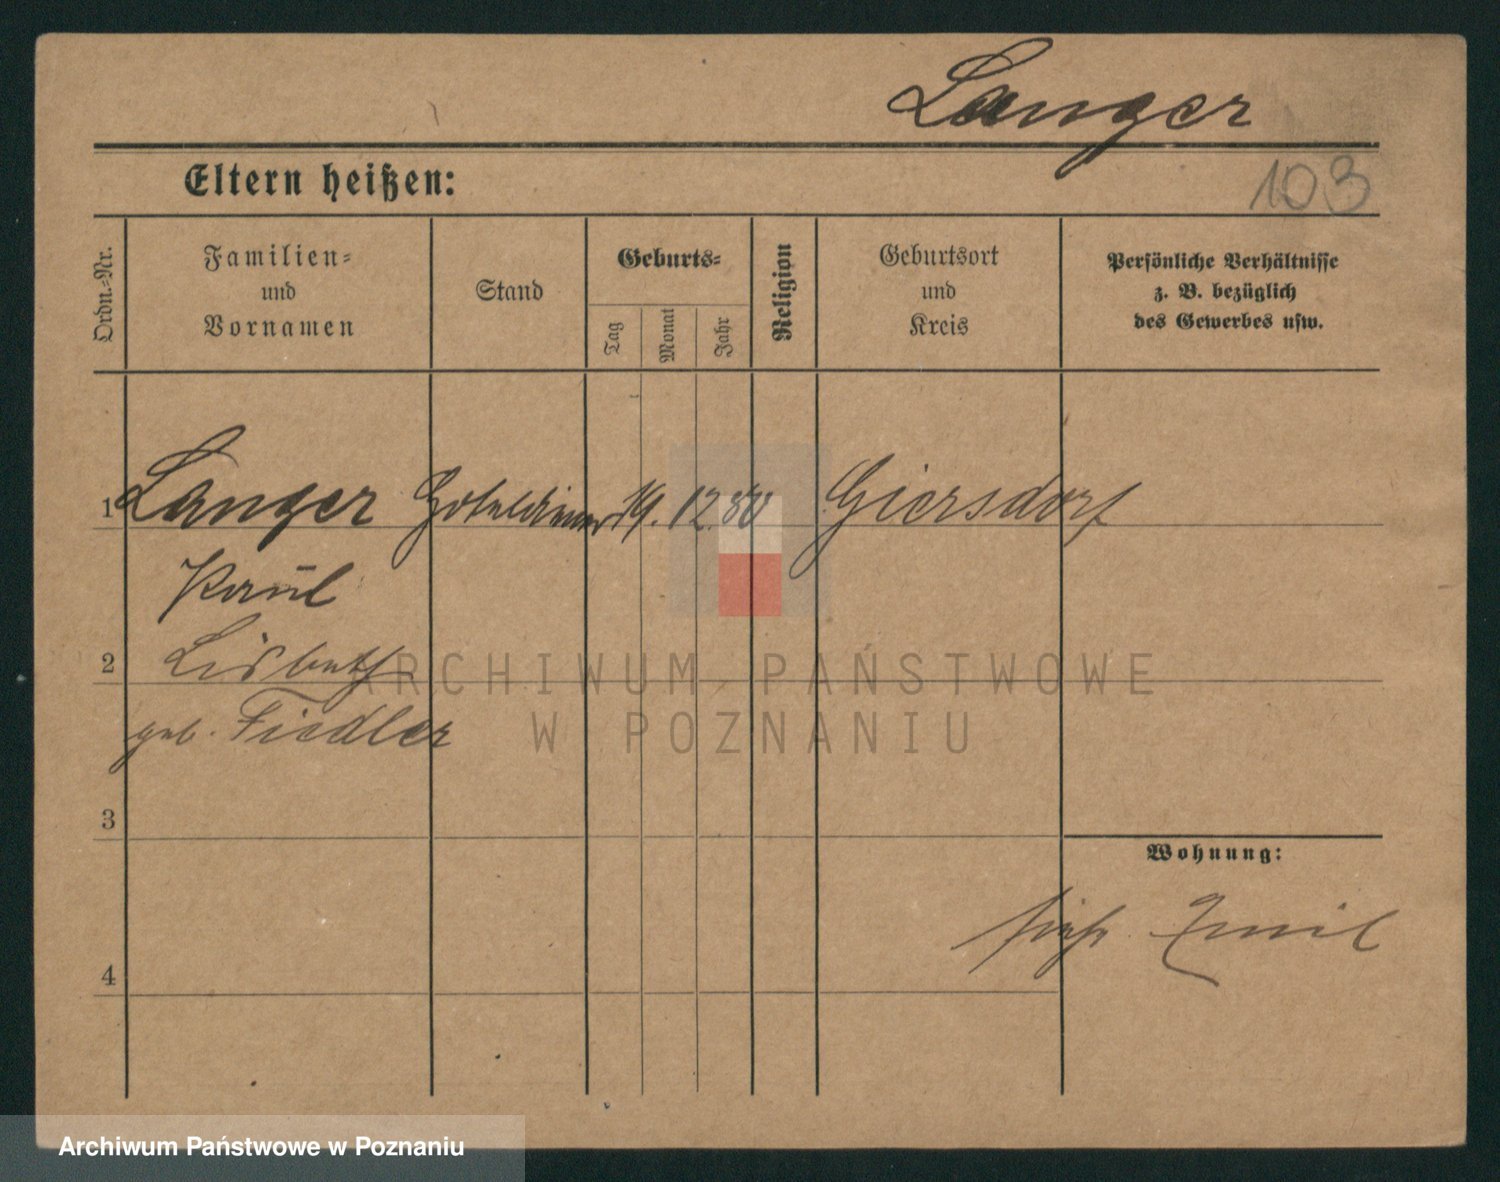 Langer
103
Eltern heißen:
Ordn.-Nr.
Familien- und Vornamen
Stand
Geburts-
Tag
Monat
Jahr
Religion
Geburtsort und Kreis
Persönliche Verhältnisse z. B. bezüglich des Gewerbes usw.
1 Langer Hoteldiener 19. 12. 80 Giersdorf
Paul
2 Lisbeth
geb. Fiedler
ARCHIWUM PAŃSTWOWE
W POZNANIU
3
Wohnung:
siehe Emil
4
Archiwum Państwowe w Poznaniu